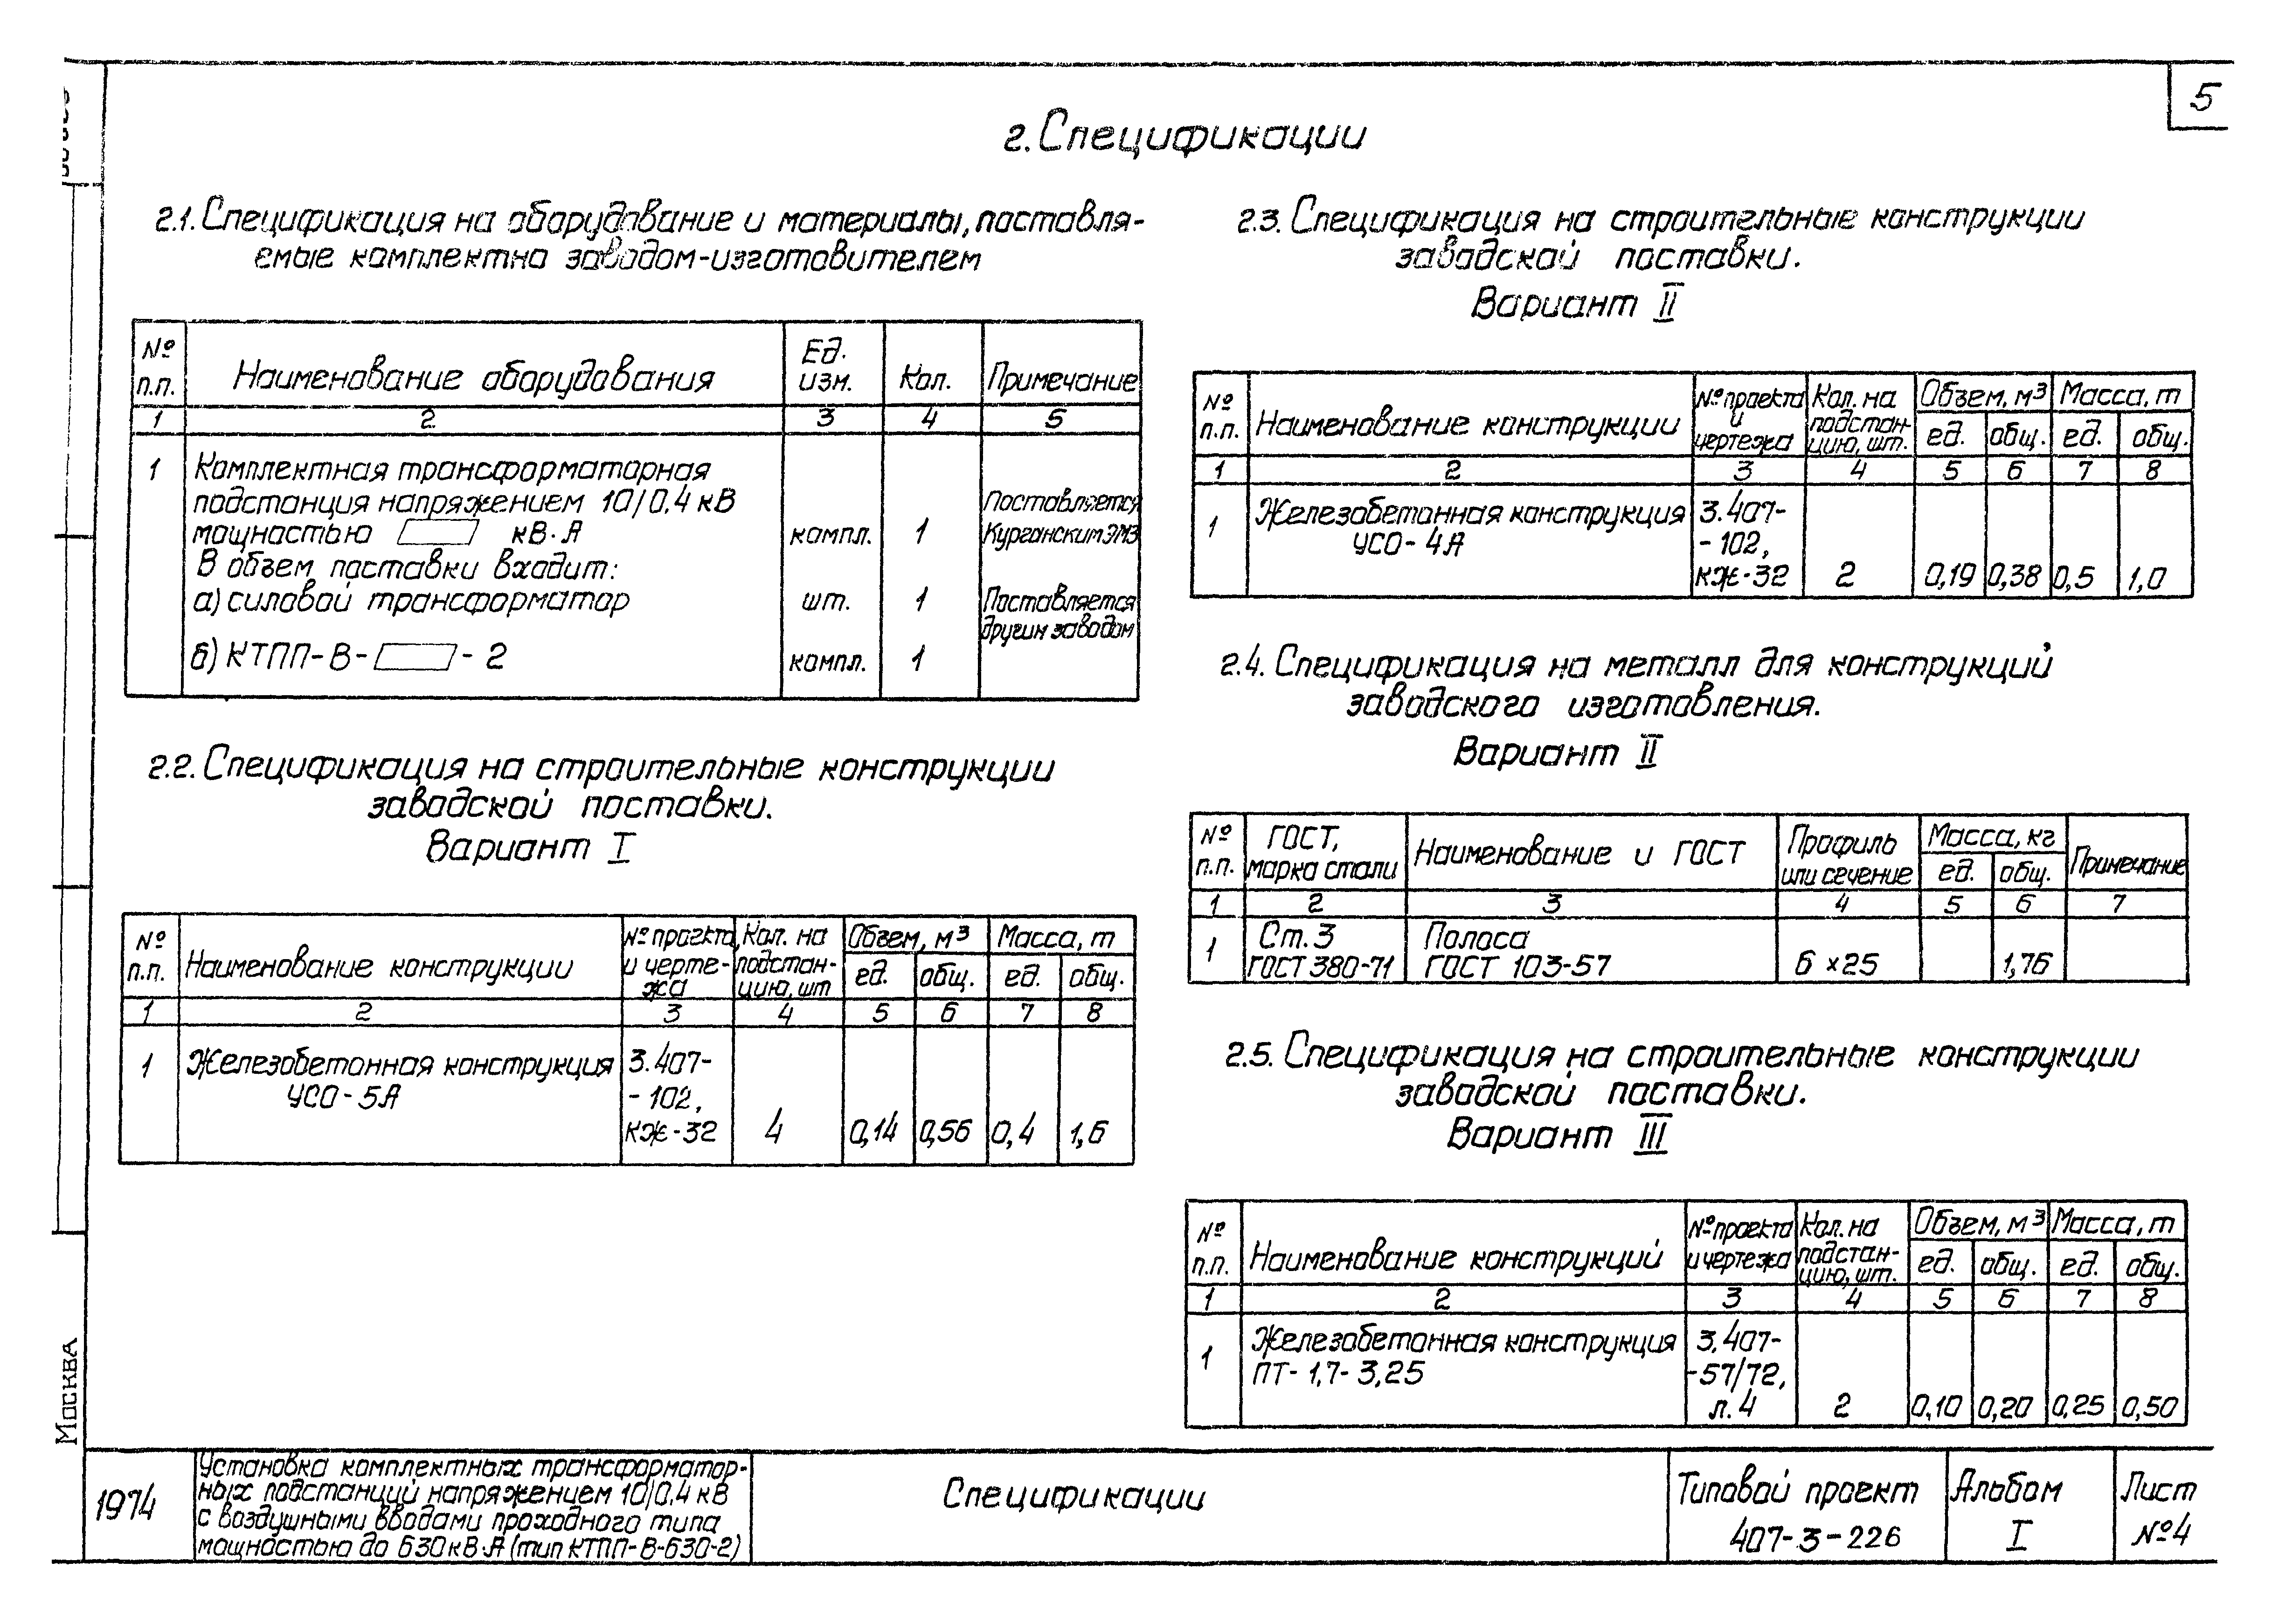 5
2. Спецификации
2.1. Спецификация на оборудование и материалы, поставля-
емые комплектно заводом-изготовителем
№ п.п. Наименование оборудования Ед. изм. Кол. Примечание
1 2 3 4 5
1 Комплектная трансформаторная
подстанция напряжением 10/0,4 кВ Поставляется
мощностью кВ·А компл. 1 Курганским ЭМЗ
В объем поставки входит:
а) силовой трансформатор шт. 1 Поставляется
другим заводом
б) КТПП-В- - 2 компл. 1
2.2. Спецификация на строительные конструкции
заводской поставки.
Вариант I
№ п.п. Наименование конструкции № проекта, и черте-жа Кол. на подстан-цию, шт Объем, м³ Масса, т
ед. общ. ед. общ.
1 2 3 4 5 6 7 8
1 Железобетонная конструкция 3.407-
УСО-5А - 102,
КЖ-32 4 0,14 0,56 0,4 1,6
2.3. Спецификация на строительные конструкции
заводской поставки.
Вариант II
№ п.п. Наименование конструкции № проекта и чертежа Кол. на подстан-цию, шт. Объем, м³ Масса, т
ед. общ. ед. общ.
1 2 3 4 5 6 7 8
1 Железобетонная конструкция 3.407-
УСО-4А - 102,
КЖ-32 2 0,19 0,38 0,5 1,0
2.4. Спецификация на металл для конструкций
заводского изготовления.
Вариант II
№ п.п. ГОСТ, марка стали Наименование и ГОСТ Профиль или сечение Масса, кг Примечание
ед. общ.
1 2 3 4 5 6 7
1 Ст. 3 Полоса
ГОСТ 380-71 ГОСТ 103-57 6 × 25 1,76
2.5. Спецификация на строительные конструкции
заводской поставки.
Вариант III
№ п.п. Наименование конструкций № проекта и чертежа Кол. на подстан-цию, шт. Объем, м³ Масса, т
ед. общ. ед. общ.
1 2 3 4 5 6 7 8
1 Железобетонная конструкция 3.407-
ПТ-1,7-3,25 -57/72,
л. 4 2 0,10 0,20 0,25 0,50
Москва
1974
Установка комплектных трансформатор-
ных подстанций напряжением 10/0,4 кВ
с воздушными вводами проходного типа
мощностью до 630 кВ·А (тип КТПП-В-630-2)
Спецификации
Типовой проект
407-3-226
Альбом
I
Лист
№4